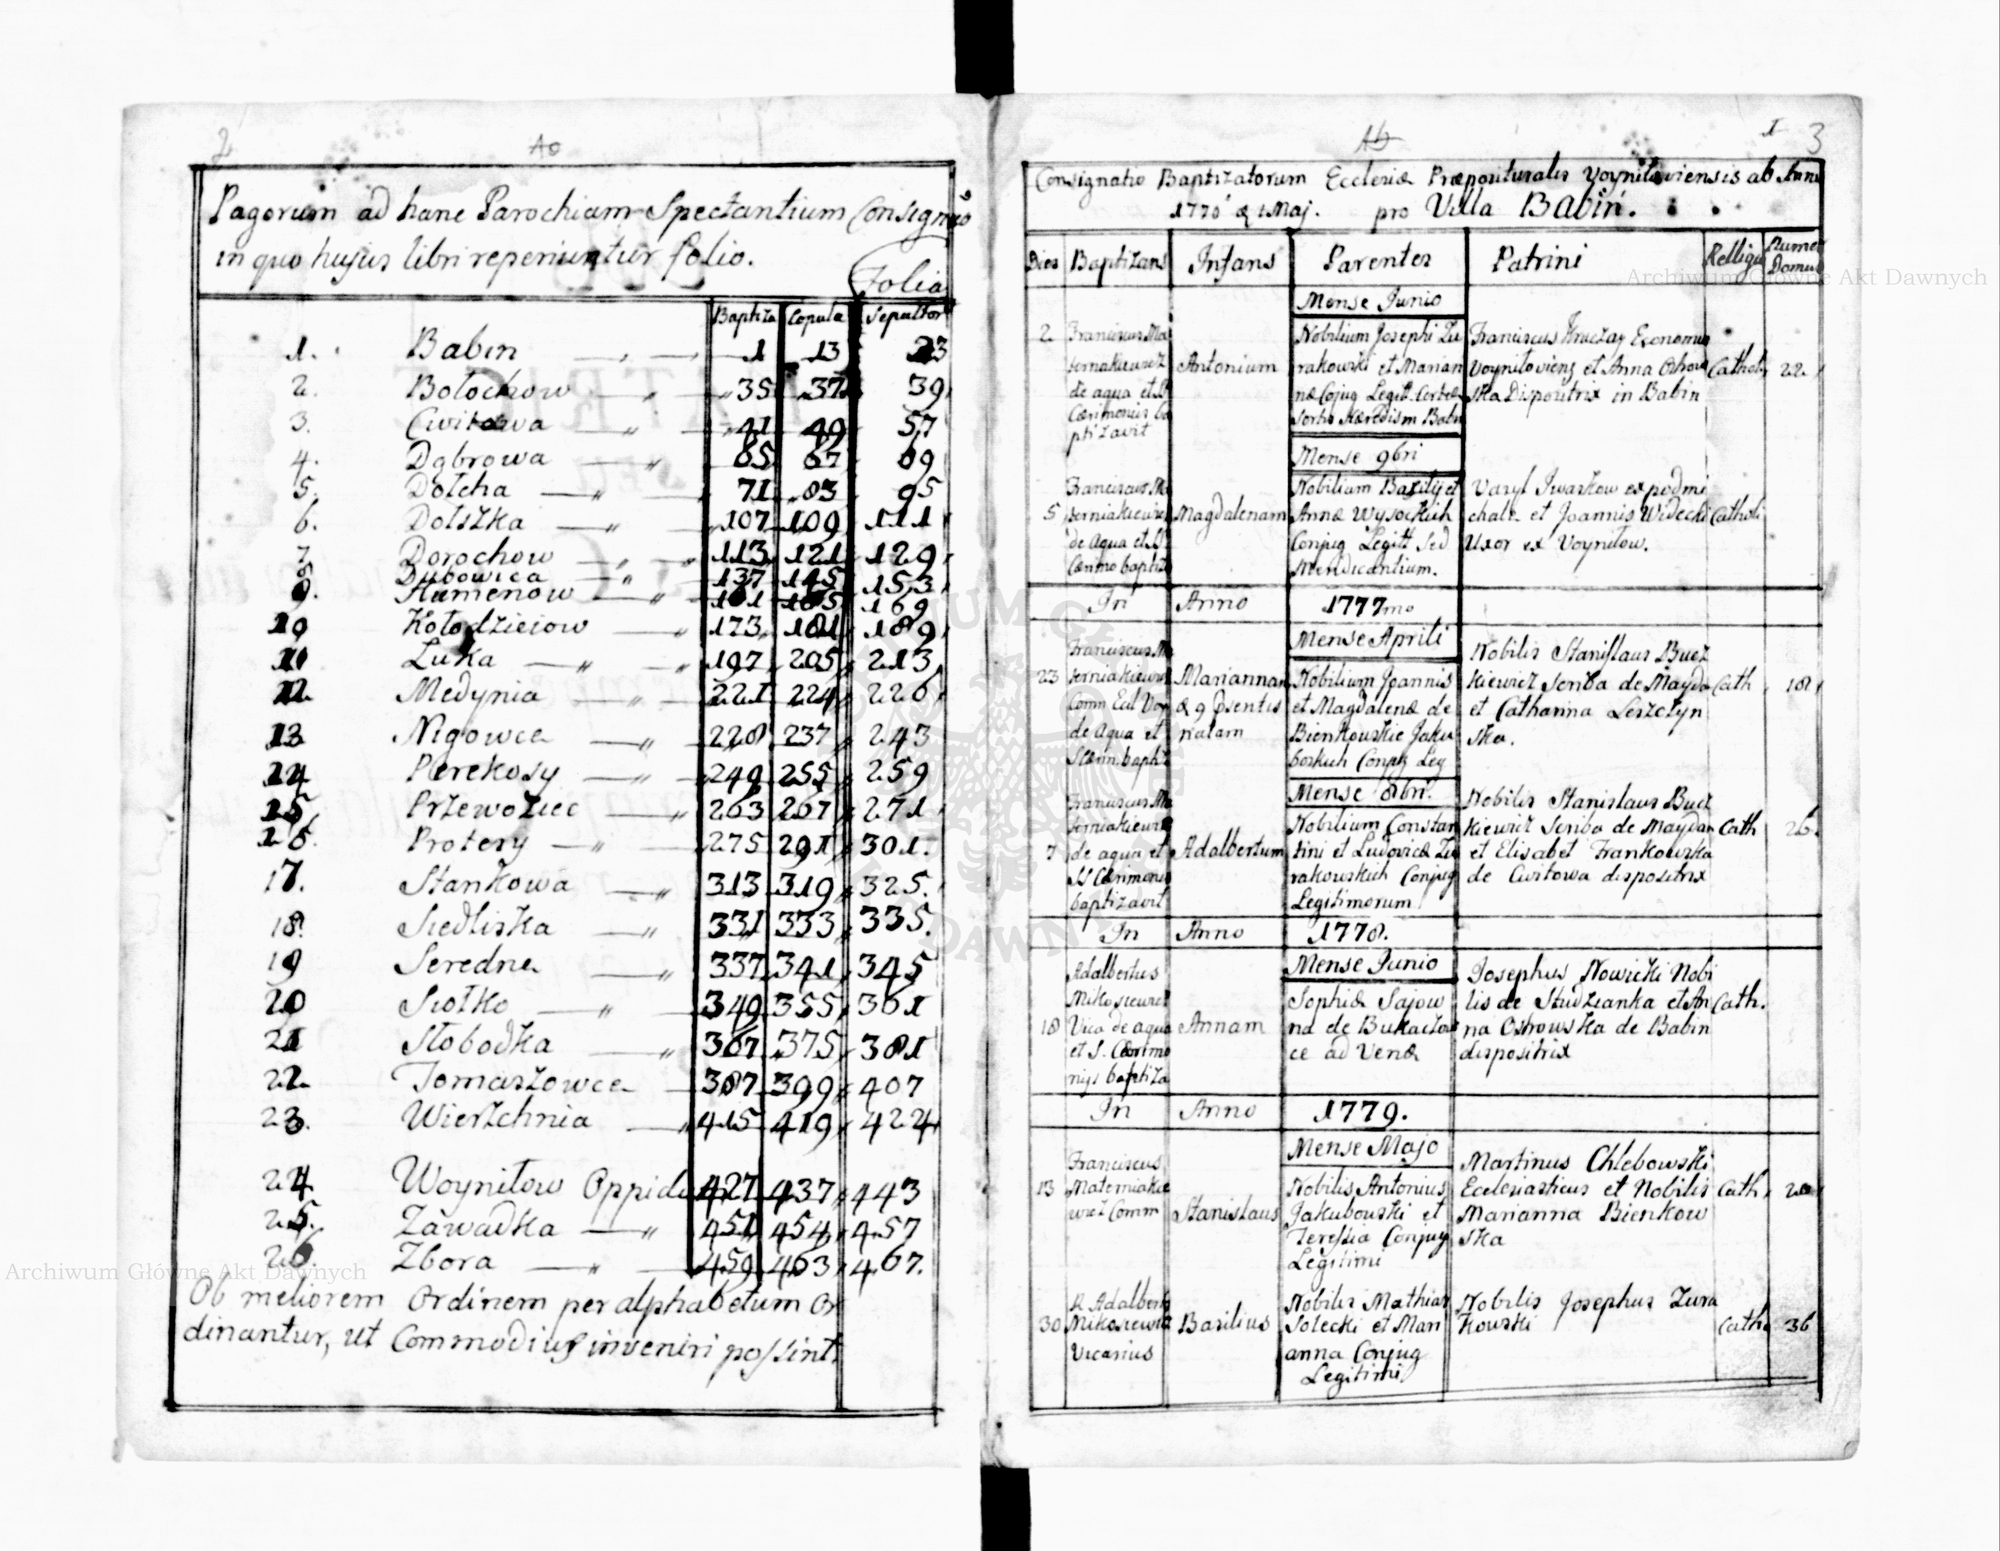 2
Pagorum ad hanc Parochiam Spectantium Consignatio
in quo hujus libri reperiuntur folio.
Folia
Baptiza Copula Sepultor
1. Babin 1 13 23
2. Bołochow 35 37 39
3. Cwitowa 41 49 57
4. Dąbrowa 65 67 69
5. Dołcha 71 83 95
6. Dołszka 107 109 111
7. Dorochow 113 121 129
8 Dubowica 137 145 153
9. Humenow 161 165 169
10 Kołodzieiow 173 181 189
11 Luka 197 205 213
12 Medynia 221 224 226
13 Nigowce 228 237 243
14 Perekosy 249 255 259
15 Przewoziec 263 267 271
16. Protesy 275 291 301.
17. Stankowa 313 319 325.
18. Siedliska 331 333 335.
19 Seredne 337 341 345
20 Siołko 349 355 361
21 Słobodka 367 375 381
22 Tomaszowce 387 399 407
23. Wierzchnia 415 419 424
24 Woyniłow Oppidum 427 437 443
25. Zawadka 451 454 457
26. Zbora 459 463 467.
Ob meliorem Ordinem per alphabetum Or
dinantur, ut Commodius inveniri possint.
1 3
Consignatio Baptizatorum Ecclesiæ Præposituralis Voyniłoviensis ab Anno
1776 & 1 Maj. pro Villa Babin.
Dies Baptizans Infans Parentes Patrini Relligio Numerus Domus
Mense Junio
2 Franciscus Ma
terniakiewicz
de aqua et S
Cærimoniis ba
ptizavit
Antonium
Nobilium Josephi Zu
rakowski et Marian
næ Conjug Legitt.
Franciscus Kruczay Economus
Voyniłoviens et Anna Ostrow
ska Dispositrix in Babin
Cathol. 22.
Mense 9bri
5 Franciscus Ma
terniakiewicz
de Aqua et SS
Cærmo baptiz
Magdalenam
Nobilium Bazilij et
Annæ Wysockich
Conjug Legitt Sed
Mendicantium.
Vasyl Iwaskow ex podmi
chale et Joannis Widecki
Uxor ex Voyniłow.
Catholi
In Anno 1777mo
Mense Aprili
23 Franciscus Ma
terniakiewicz
Comm Eccl Voy
de Aqua et
S Cærm. baptiz
Mariannam
& 9 præsentis
natam
Nobilium Joannis
et Magdalenæ de
Bienkowskie Jaku
bowskich Conjug Leg
Nobilis Stanislaus Bucz
kiewicz Scriba de Maydan
et Catharina Leszczyn
ska.
Cath. 18
Mense 8bri.
7 Franciscus Ma
terniakiewicz
de aqua et
SS Cærimonis
baptizavit
Adalbertum
Nobilium Constan
tini et Ludovicæ Zu
rakowskich Conjug
Legitimorum
Nobilis Stanislaus Bucz
kiewicz Scriba de Maydan
et Elisabet Frankowska
de Cwitowa dispositrix
Cath 26.
In Anno 1778.
Mense Junio
18 Adalbertus
Mikosiewicz
Vica de aqua
et S. Cærimo
nijs baptiza
Annam
Sophiæ Sajow
na de Bukaczow
ce ad Venæ
Josephus Nowicki Nobi
lis de Studzianka et An
na Ostrowska de Babin
dispositrix
Cath.
In Anno 1779.
Mense Majo
13 Franciscus
Materniakie
wicz Comm
Stanislaus
Nobilis Antonius
Jakubowski et
Teressia Conjug
Legitimi
Martinus Chlebowski
Ecclesiasticus et Nobilis
Marianna Bienkow
ska
Cath.
30 R Adalbertus
Mikosiewicz
Vicarius
Basilius
Nobilis Mathias
Solecki et Mari
anna Conjug
Legitimi
Nobilis Josephus Zura
kowski
Cath. 36
Archiwum Główne Akt Dawnych
Archiwum Główne Akt Dawnych